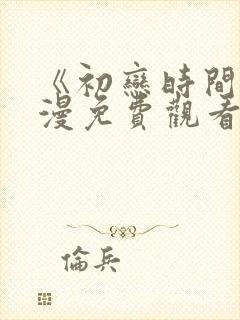 《初戀時間
漫免費觀看
倫兵